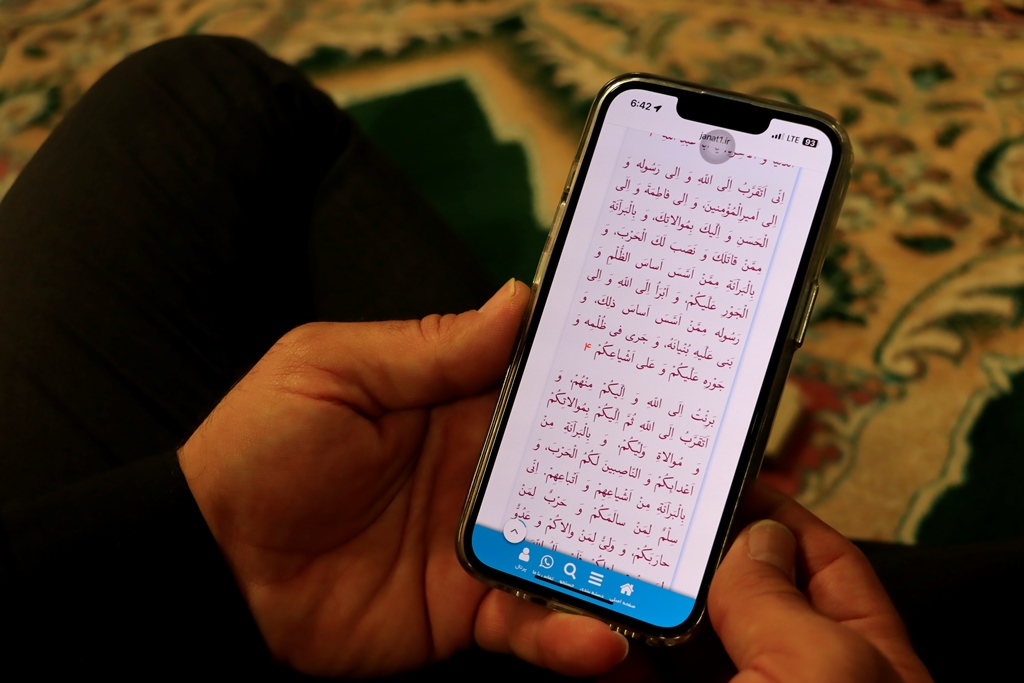 6:42
LTE 93
janat1.ir
اِنّی اَتَقَرَّبُ اِلَی اللهِ وَ اِلی رَسُولِه وَ
اِلی اَمیرِالْمُؤْمِنینَ، وَ اِلی فاطِمَةَ وَ اِلَی
الْحَسَنِ وَ اِلَیْكَ بِمُوالاتِكَ، وَ بِالْبَرآئَةِ
مِمَّنْ قاتَلَكَ وَ نَصَبَ لَكَ الْحَرْبَ، وَ
بِالْبَرآئَةِ مِمَّنْ اَسَّسَ اَساسَ الظُّلْمِ وَ
الْجَوْرِ عَلَیْكُمْ، وَ اَبْرَأُ اِلَی اللهِ وَ اِلی
رَسُولِه مِمَّنْ اَسَّسَ اَساسَ ذلِكَ، وَ
بَنی عَلَیْهِ بُنْیانَهُ، وَ جَری فی ظُلْمِه وَ
جَوْرِه عَلَیْكُمْ وَ عَلی اَشْیاعِكُمْ ۴
بَرِئْتُ اِلَی اللهِ وَ اِلَیْكُمْ مِنْهُمْ، وَ
اَتَقَرَّبُ اِلَی اللهِ ثُمَّ اِلَیْكُمْ بِمُوالاتِكُمْ
وَ مُوالاةِ وَلِیِّكُمْ، وَ بِالْبَرآئَةِ مِنْ
اَعْدآئِكُمْ وَ النّاصِبینَ لَكُمُ الْحَرْبَ، وَ
بِالْبَرآئَةِ مِنْ اَشْیاعِهِمْ وَ اَتْباعِهِمْ. اِنّی
سِلْمٌ لِمَنْ سالَمَكُمْ وَ حَرْبٌ لِمَنْ
حارَبَكُمْ، وَ وَلِیٌّ لِمَنْ والاكُمْ وَ عَدُوٌّ
صفحه اصلی
جستجو
پرتال